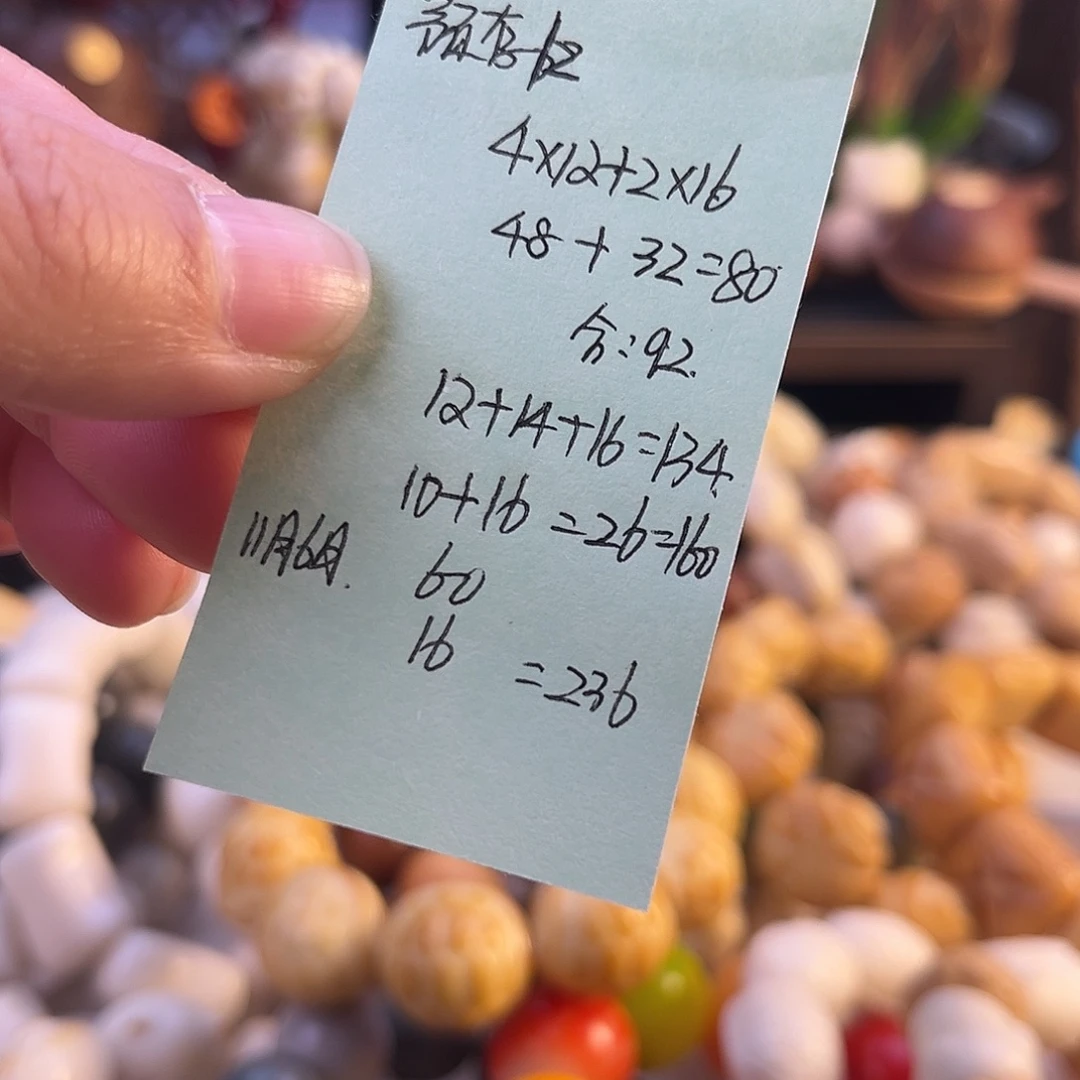 4×12+2×16
48+32=80
合:92.
12+14+16=134.
10+16=26=160
11月6日. 60
16 =236